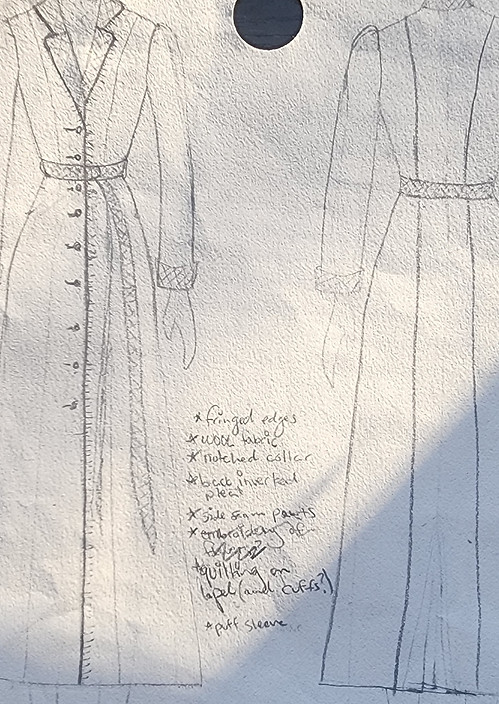 * fringed edges
* wool fabric
* notched collar
* back inverted
pleat
* side seam pockets
* embroidery of
* quilting on
lapel (and cuffs?)
* puff sleeve